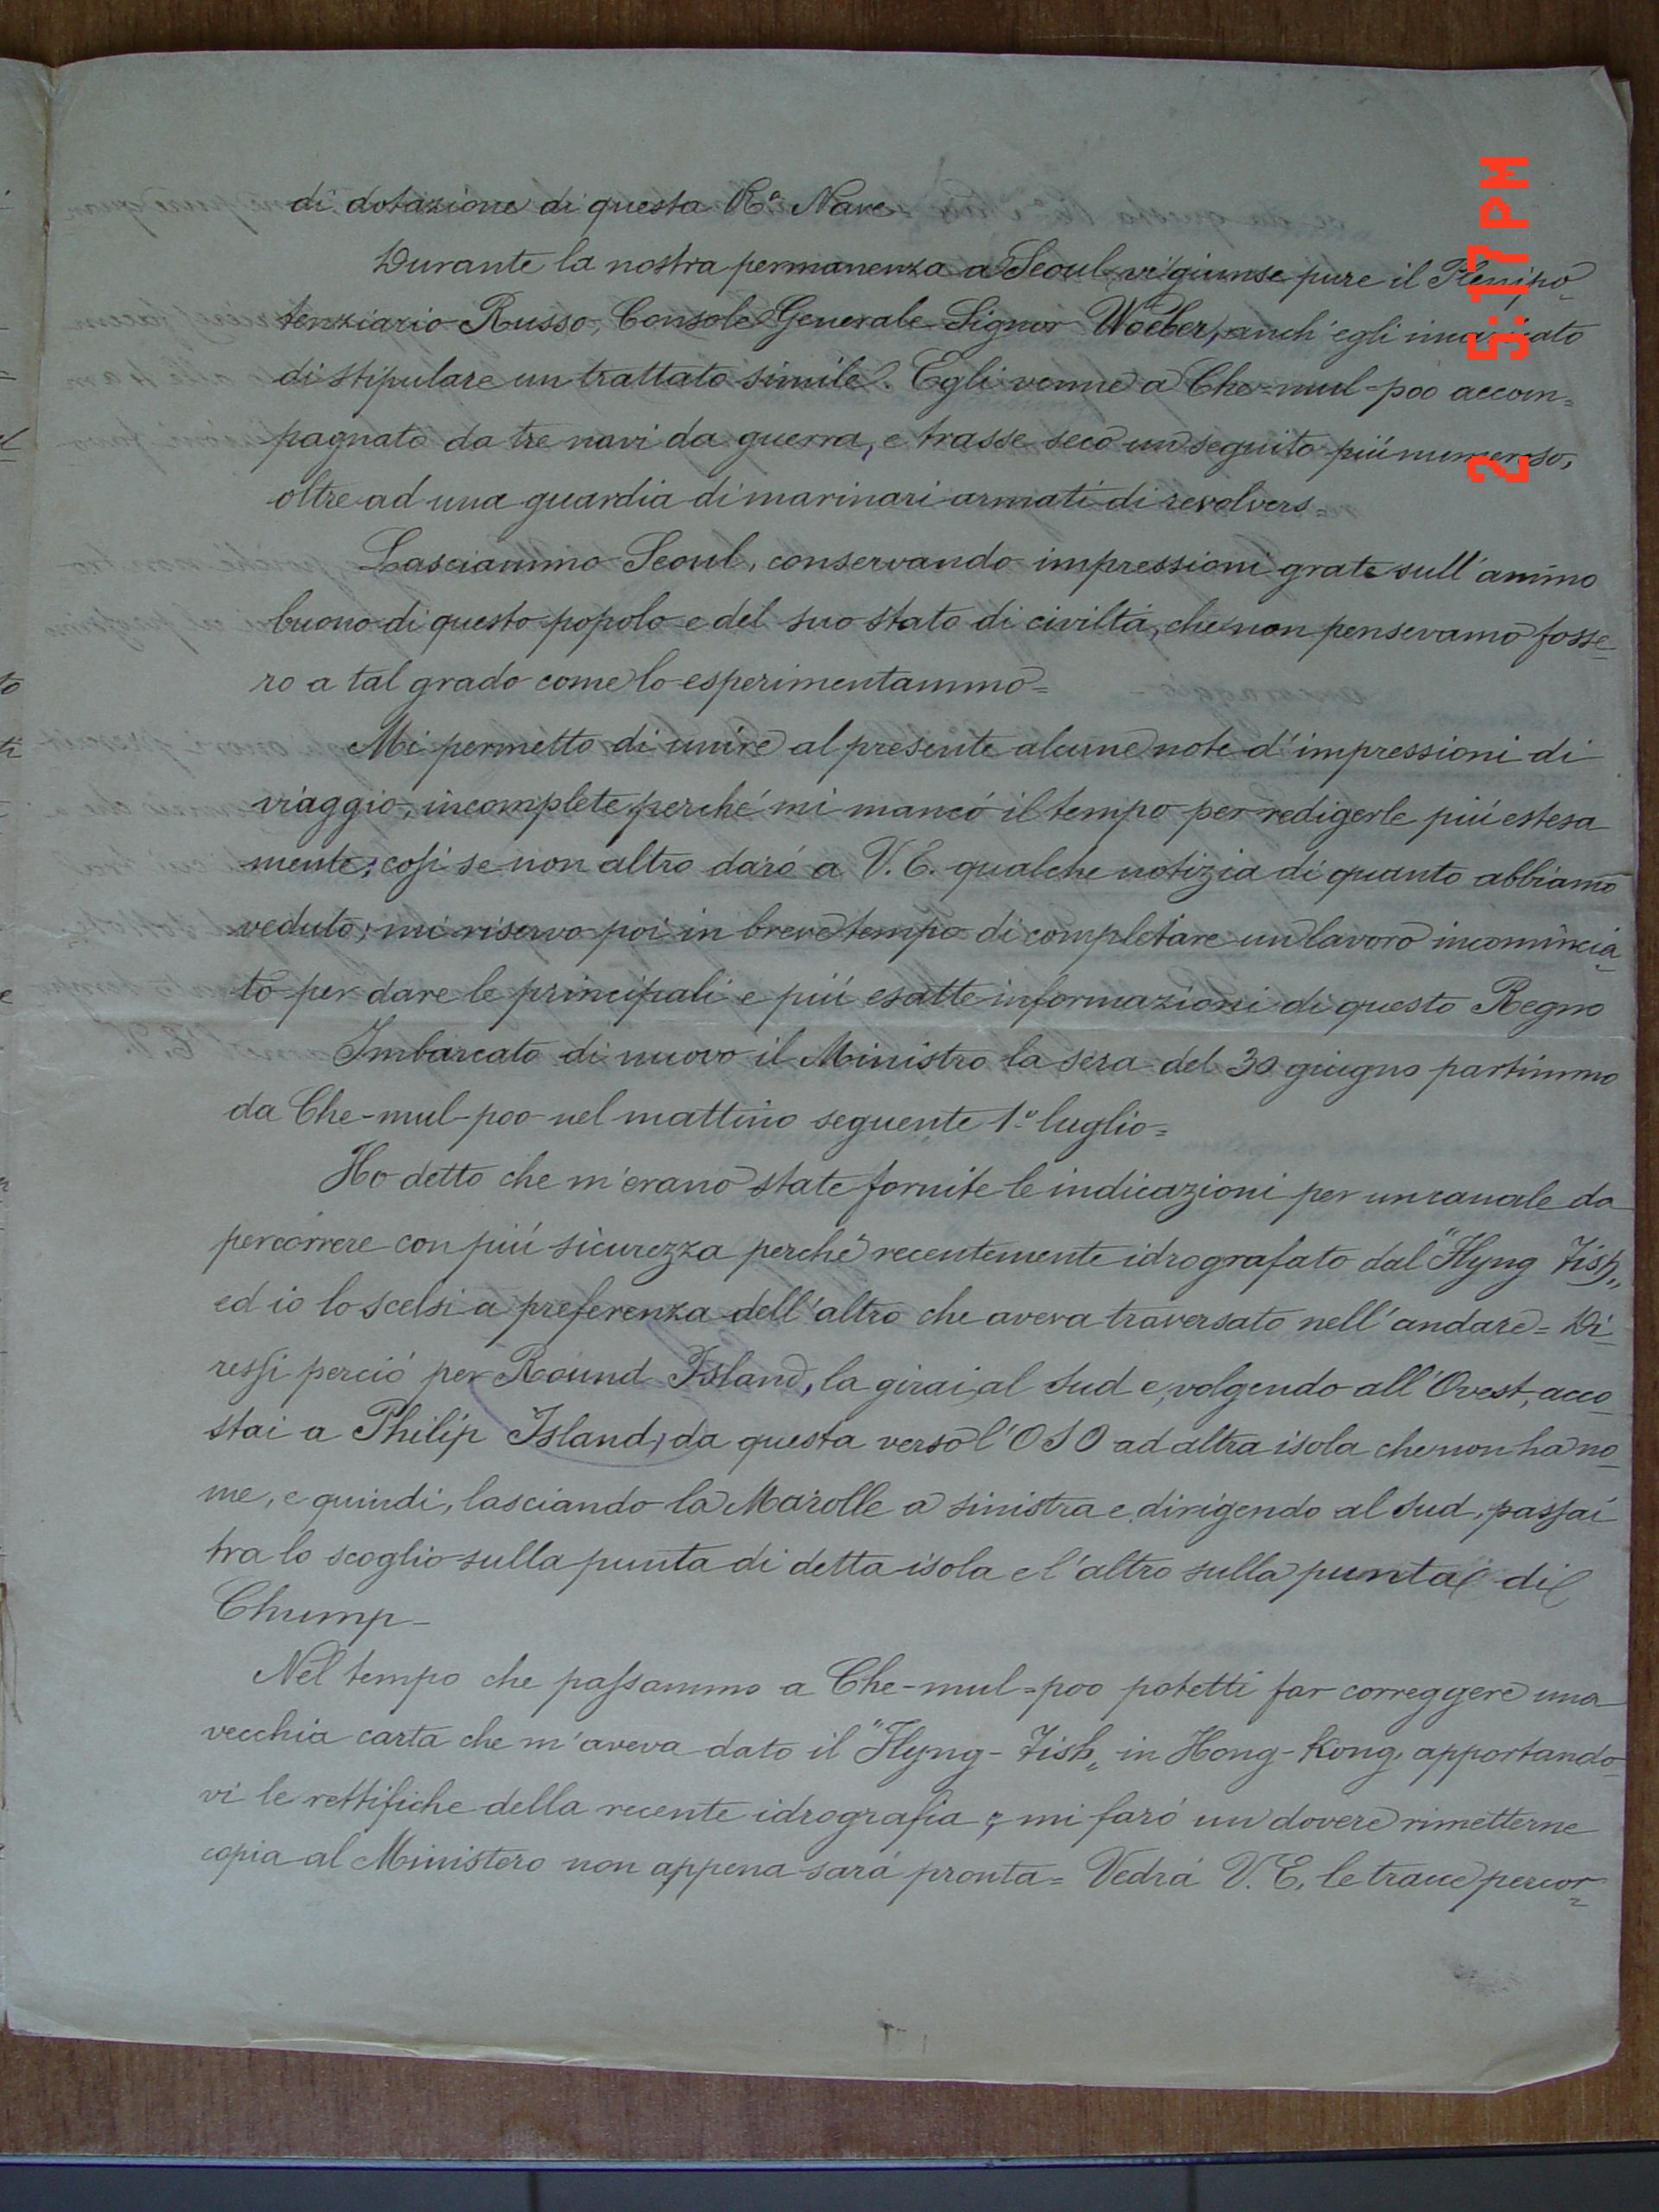 di dotazione di questa R.ª Nave
Durante la nostra permanenza a Seoul, vi giunse pure il Plenipo-
tenziario Russo, Console Generale Signor Woeber, anch'egli incaricato
di stipulare un trattato simile. Egli venne a Che-mul-poo accom=
pagnato da tre navi da guerra, e trasse seco un seguito piú numeroso,
oltre ad una guardia di marinari armati di revolvers=
Lasciammo Seoul, conservando impressioni grate sull'animo
buono di questo popolo e del suo stato di civiltá, che non pensevamo fosse-
ro a tal grado come lo esperimentammo=
Mi permetto di unire al presente alcune note d'impressioni di
viaggio, incomplete perché mi mancó il tempo per redigerle piú estesa
mente; cosi se non altro daró a V. E. qualche notizia di quanto abbiamo
veduto; mi riservo poi in breve tempo di completare un lavoro incomincia-
to per dare le principali e piú esatte informazioni di questo Regno
Imbarcato di nuovo il Ministro la sera del 30 giugno partimmo
da Che-mul-poo nel mattino seguente 1.º luglio=
Ho detto che m'erano state fornite le indicazioni per un canale da
percorrere con piú sicurezza perché recentemente idrografato dal "Flyng Fish„
ed io lo scelsi a preferenza dell'altro che aveva traversato nell'andare= Di-
ressi perció per Round Island, la girai, al Sud e, volgendo all'Ovest, acco-
stai a Philip Island; da questa verso l'OSO ad altra isola che non ha no-
me, e quindi, lasciando la Marolle a sinistra e dirigendo al Sud, passai
tra lo scoglio sulla punta di detta isola e l'altro sulla punta di
Chump-
Nel tempo che passammo a Che-mul=poo potetti far correggere una
vecchia carta che m'aveva dato il "Flyng-Fish„ in Hong-Kong, apportando-
vi le rettifiche della recente idrografia; mi faró un dovere rimetterne
copia al Ministero non appena sará pronta= Vedrá V. E. le tracce percor=
2 5:17PM